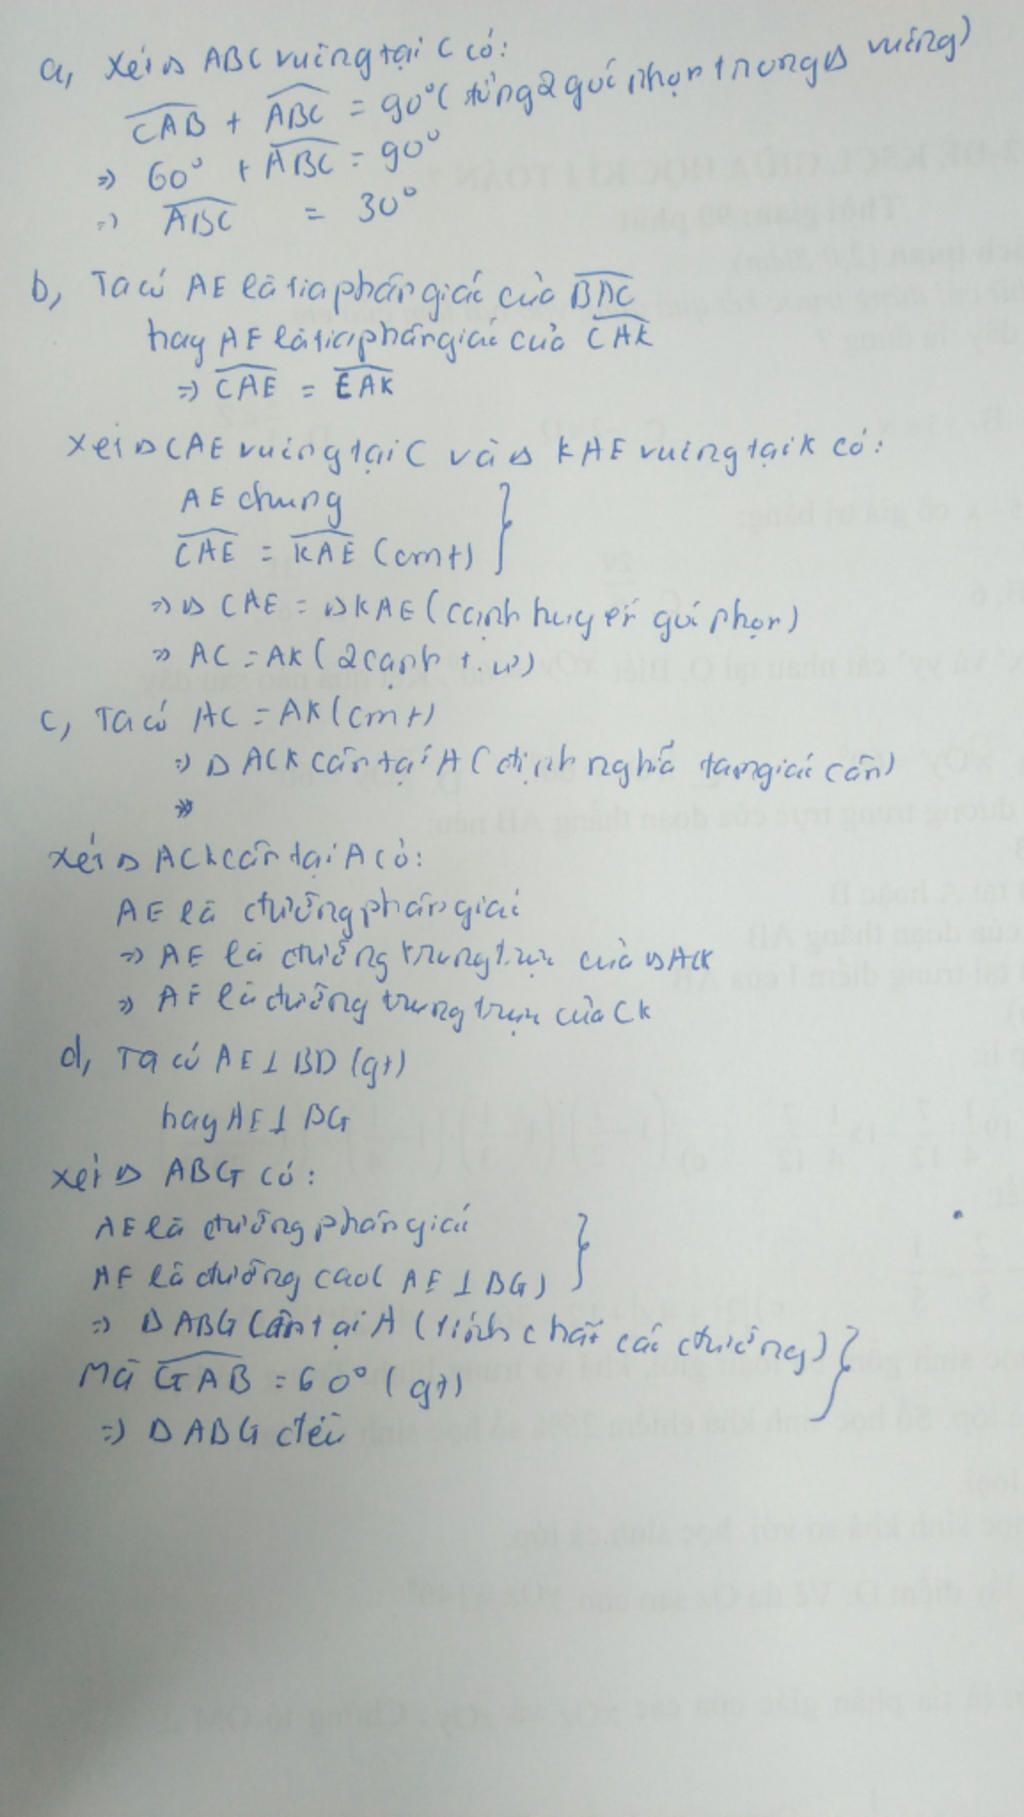 a, Xét Δ ABC vuông tại C có:
CAB + ABC = 90° (tổng 2 góc nhọn trong Δ vuông)
=> 60° + ABC = 90°
=> ABC = 30°
b, Ta có AE là tia phân giác của BAC
hay AE là tia phân giác của CAK
=> CAE = EAK
Xét Δ CAE vuông tại C và Δ KAE vuông tại K có:
AE chung
CAE = KAE (cmt)
=> Δ CAE = Δ KAE (cạnh huyền góc nhọn)
=> AC = AK (2 cạnh t.ư)
c, Ta có AC = AK (cmt)
=> Δ ACK cân tại A (định nghĩa tam giác cân)
=>
Xét Δ ACK cân tại A có:
AE là đường phân giác
=> AE là đường trung trực của Δ ACK
=> AE là đường trung trực của CK
d, Ta có AE ⊥ BD (gt)
hay AE ⊥ BG
Xét Δ ABG có:
AE là đường phân giác
AE là đường cao ( AE ⊥ BG)
=> Δ ABG cân tại A (tính chất các đường)
Mà GAB = 60° (gt)
=> Δ ABG đều